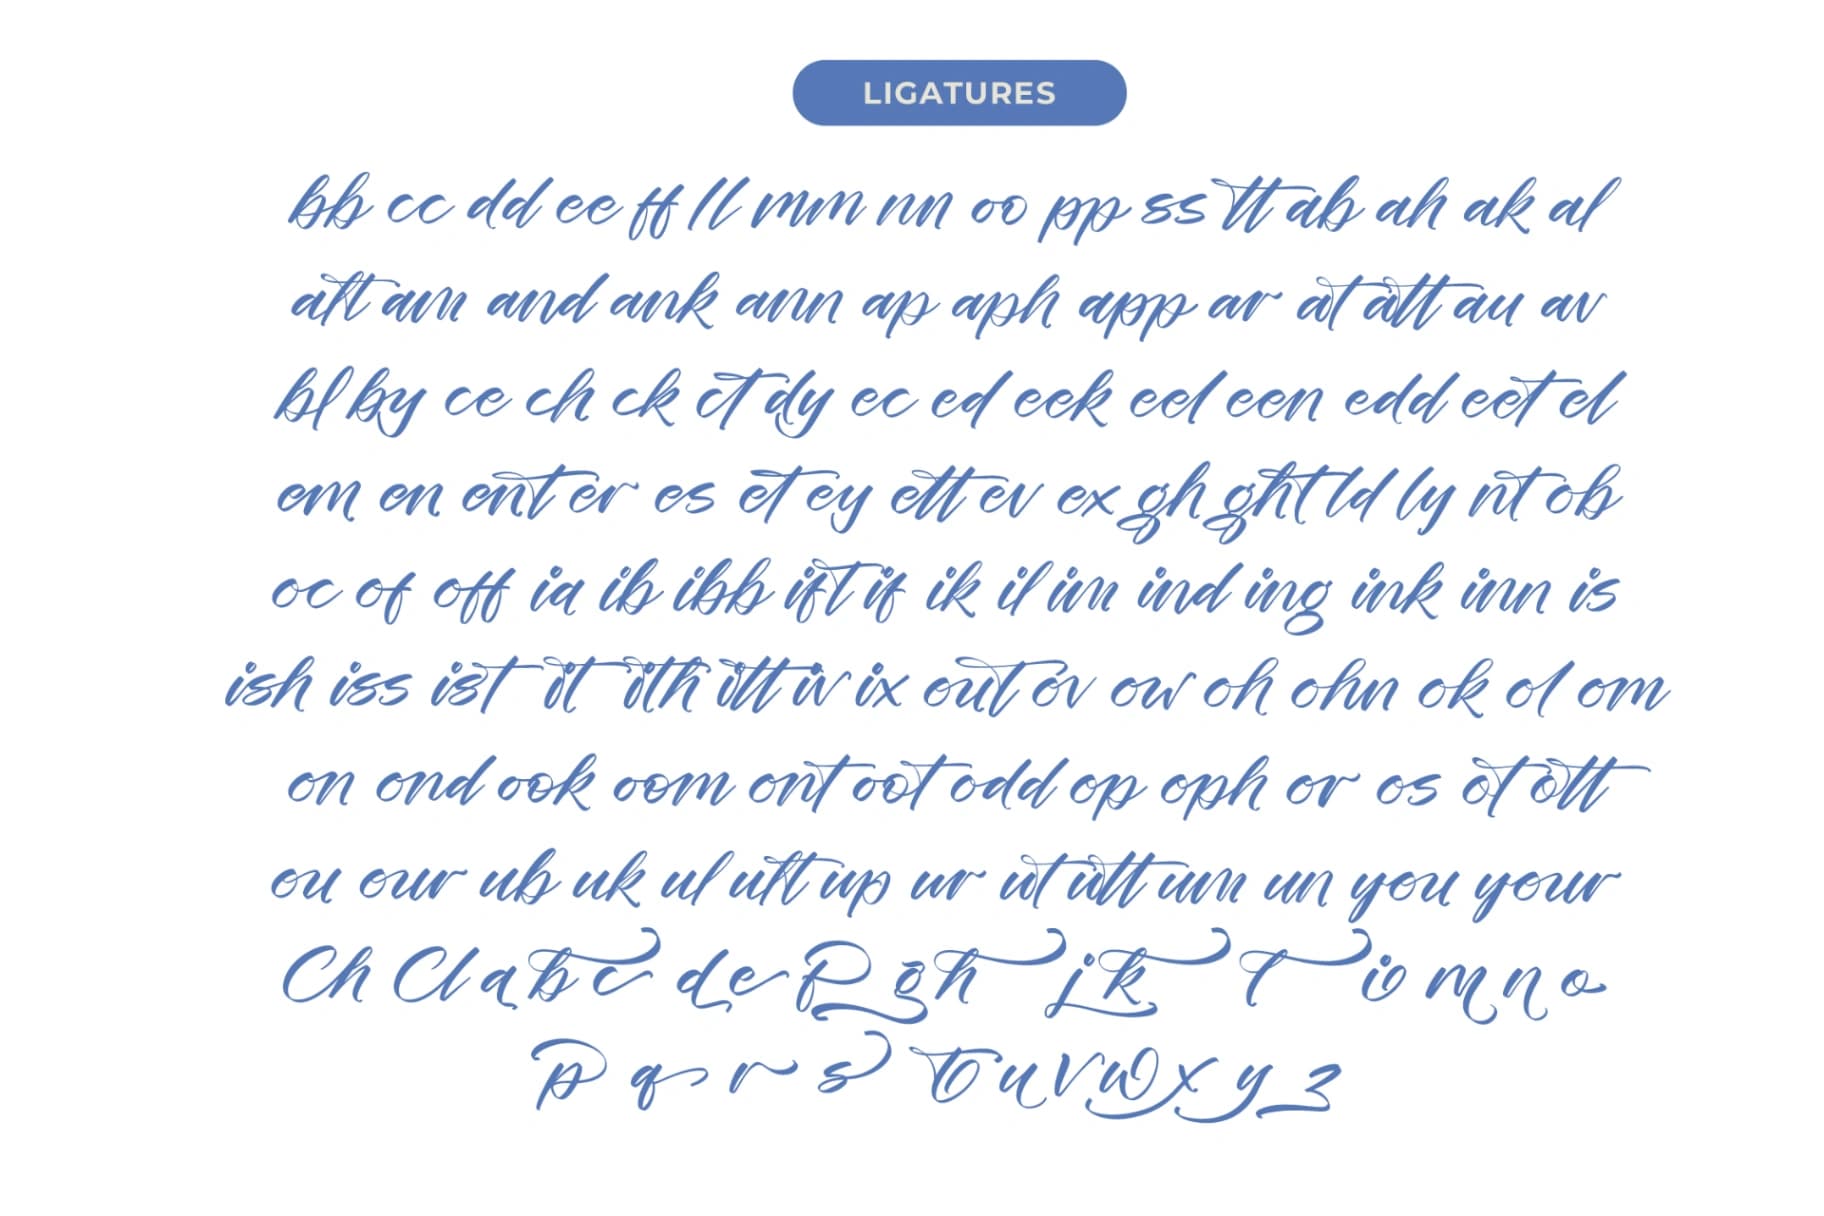 LIGATURES
bb cc dd ee ff ll mm nn oo pp ss tt ab ah ak al
aft am and ank ann ap aph app ar at att au av
bl by ce ch ck ct dy ec ed eek eel een edd eet el
em en ent er es et ey ett ev ex gh ght ld ly nt ob
oc of off ia ib ibb ift if ik il im ind ing ink inn is
ish iss ist it ith itt iv ix out ov ow oh ohn ok ol om
on ond ook oom ont oot odd op oph or os ot ott
ou our ub uk ul uft up ur ut utt um un you your
Ch Cl a b c d e f g h i j k l m n o
p q r s t u v w x y z